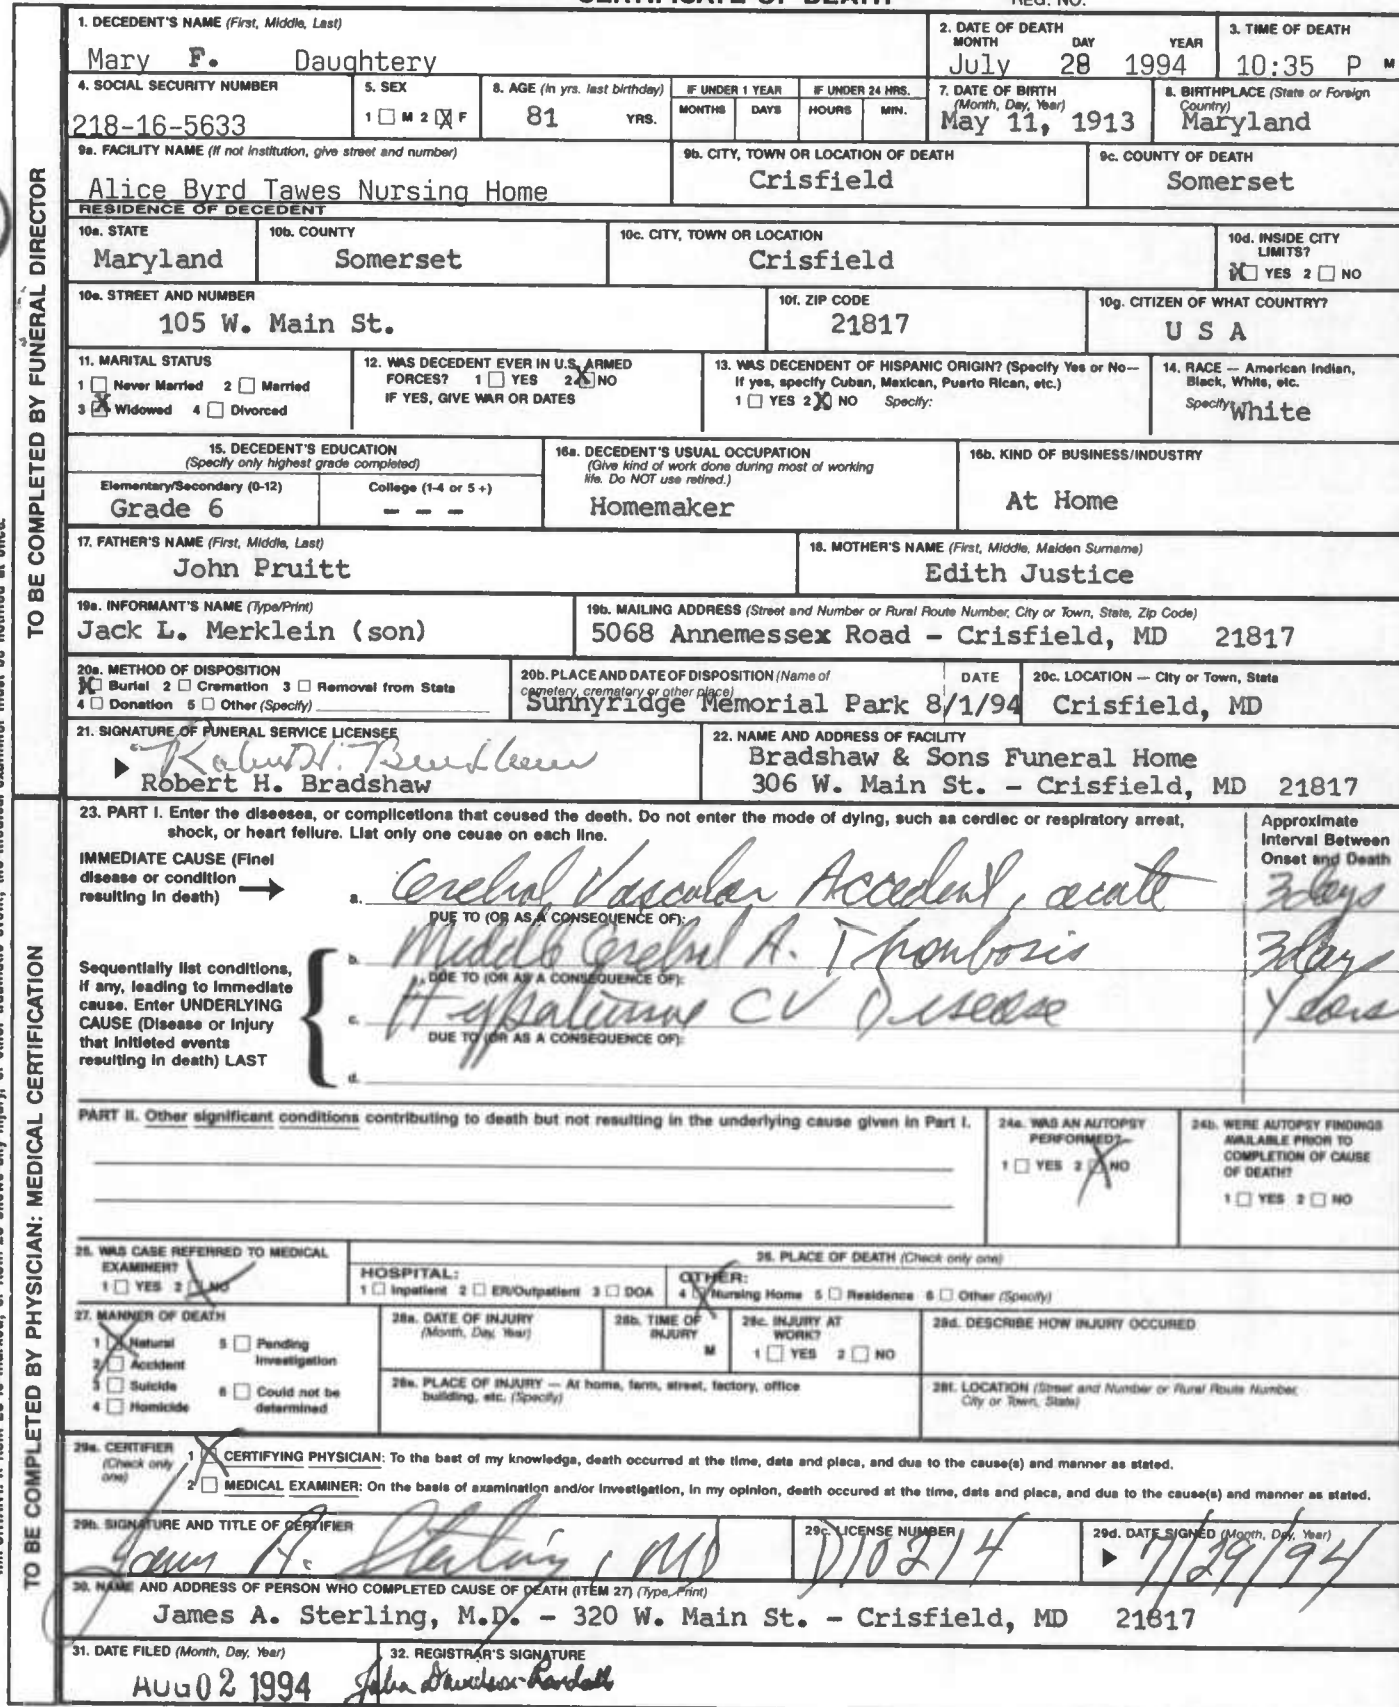 1. DECEDENT'S NAME (First, Middle, Last)
Mary F. Daughtery
2. DATE OF DEATH
MONTH DAY YEAR
July 28 1994
3. TIME OF DEATH
10:35 P M
4. SOCIAL SECURITY NUMBER
218-16-5633
5. SEX
1 M 2 X F
6. AGE (In yrs. last birthday)
81 YRS.
IF UNDER 1 YEAR
MONTHS DAYS
IF UNDER 24 HRS.
HOURS MIN.
7. DATE OF BIRTH
(Month, Day, Year)
May 11, 1913
8. BIRTHPLACE (State or Foreign
Country)
Maryland
9a. FACILITY NAME (If not institution, give street and number)
Alice Byrd Tawes Nursing Home
9b. CITY, TOWN OR LOCATION OF DEATH
Crisfield
9c. COUNTY OF DEATH
Somerset
RESIDENCE OF DECEDENT
10a. STATE
Maryland
10b. COUNTY
Somerset
10c. CITY, TOWN OR LOCATION
Crisfield
10d. INSIDE CITY
LIMITS?
X YES 2 NO
10e. STREET AND NUMBER
105 W. Main St.
10f. ZIP CODE
21817
10g. CITIZEN OF WHAT COUNTRY?
U S A
11. MARITAL STATUS
1 Never Married 2 Married
3 X Widowed 4 Divorced
12. WAS DECEDENT EVER IN U.S. ARMED
FORCES? 1 YES 2 X NO
IF YES, GIVE WAR OR DATES
13. WAS DECENDENT OF HISPANIC ORIGIN? (Specify Yes or No—
If yes, specify Cuban, Mexican, Puerto Rican, etc.)
1 YES 2 X NO Specify:
14. RACE — American Indian,
Black, White, etc.
Specify: White
15. DECEDENT'S EDUCATION
(Specify only highest grade completed)
Elementary/Secondary (0-12)
Grade 6
College (1-4 or 5+)
— — —
16a. DECEDENT'S USUAL OCCUPATION
(Give kind of work done during most of working
life. Do NOT use retired.)
Homemaker
16b. KIND OF BUSINESS/INDUSTRY
At Home
17. FATHER'S NAME (First, Middle, Last)
John Pruitt
18. MOTHER'S NAME (First, Middle, Maiden Surname)
Edith Justice
19a. INFORMANT'S NAME (Type/Print)
Jack L. Merklein (son)
19b. MAILING ADDRESS (Street and Number or Rural Route Number, City or Town, State, Zip Code)
5068 Annemessex Road - Crisfield, MD 21817
20a. METHOD OF DISPOSITION
X Burial 2 Cremation 3 Removal from State
4 Donation 5 Other (Specify)
20b. PLACE AND DATE OF DISPOSITION (Name of
cemetery, crematory or other place)
DATE
Sunnyridge Memorial Park 8/1/94
20c. LOCATION — City or Town, State
Crisfield, MD
21. SIGNATURE OF FUNERAL SERVICE LICENSEE
Robert H. Bradshaw
Robert H. Bradshaw
22. NAME AND ADDRESS OF FACILITY
Bradshaw & Sons Funeral Home
306 W. Main St. - Crisfield, MD 21817
TO BE COMPLETED BY FUNERAL DIRECTOR
23. PART I. Enter the diseases, or complications that caused the death. Do not enter the mode of dying, such as cardiac or respiratory arrest,
shock, or heart failure. List only one cause on each line.
Approximate
Interval Between
Onset and Death
IMMEDIATE CAUSE (Final
disease or condition
resulting in death)
a. Cerebral Vascular Accedent, acute 3 days
DUE TO (OR AS A CONSEQUENCE OF):
b. Middle Cerebral A. Thrombosis 3 days
DUE TO (OR AS A CONSEQUENCE OF):
Sequentially list conditions,
if any, leading to immediate
cause. Enter UNDERLYING
CAUSE (Disease or injury
that initiated events
resulting in death) LAST
c. Hypertensive CV Disease Years
DUE TO (OR AS A CONSEQUENCE OF):
d.
PART II. Other significant conditions contributing to death but not resulting in the underlying cause given in Part I.
24a. WAS AN AUTOPSY
PERFORMED?
1 YES 2 X NO
24b. WERE AUTOPSY FINDINGS
AVAILABLE PRIOR TO
COMPLETION OF CAUSE
OF DEATH?
1 YES 2 NO
25. WAS CASE REFERRED TO MEDICAL
EXAMINER?
1 YES 2 X NO
26. PLACE OF DEATH (Check only one)
HOSPITAL:
1 Inpatient 2 ER/Outpatient 3 DOA
OTHER:
4 X Nursing Home 5 Residence 6 Other (Specify)
27. MANNER OF DEATH
1 X Natural 5 Pending
2 Accident Investigation
3 Suicide 6 Could not be
4 Homicide determined
28a. DATE OF INJURY
(Month, Day, Year)
28b. TIME OF
INJURY
M
28c. INJURY AT
WORK?
1 YES 2 NO
28d. DESCRIBE HOW INJURY OCCURED
28e. PLACE OF INJURY — At home, farm, street, factory, office
building, etc. (Specify)
28f. LOCATION (Street and Number or Rural Route Number,
City or Town, State)
29a. CERTIFIER
(Check only
one)
1 X CERTIFYING PHYSICIAN: To the best of my knowledge, death occurred at the time, date and place, and due to the cause(s) and manner as stated.
2 MEDICAL EXAMINER: On the basis of examination and/or investigation, in my opinion, death occured at the time, date and place, and due to the cause(s) and manner as stated.
29b. SIGNATURE AND TITLE OF CERTIFIER
James A. Sterling, MD
29c. LICENSE NUMBER
D10214
29d. DATE SIGNED (Month, Day, Year)
7/29/94
30. NAME AND ADDRESS OF PERSON WHO COMPLETED CAUSE OF DEATH (ITEM 27) (Type, Print)
James A. Sterling, M.D. - 320 W. Main St. - Crisfield, MD 21817
31. DATE FILED (Month, Day, Year)
AUG 02 1994
32. REGISTRAR'S SIGNATURE
Julia Davidson-Randall
TO BE COMPLETED BY PHYSICIAN: MEDICAL CERTIFICATION